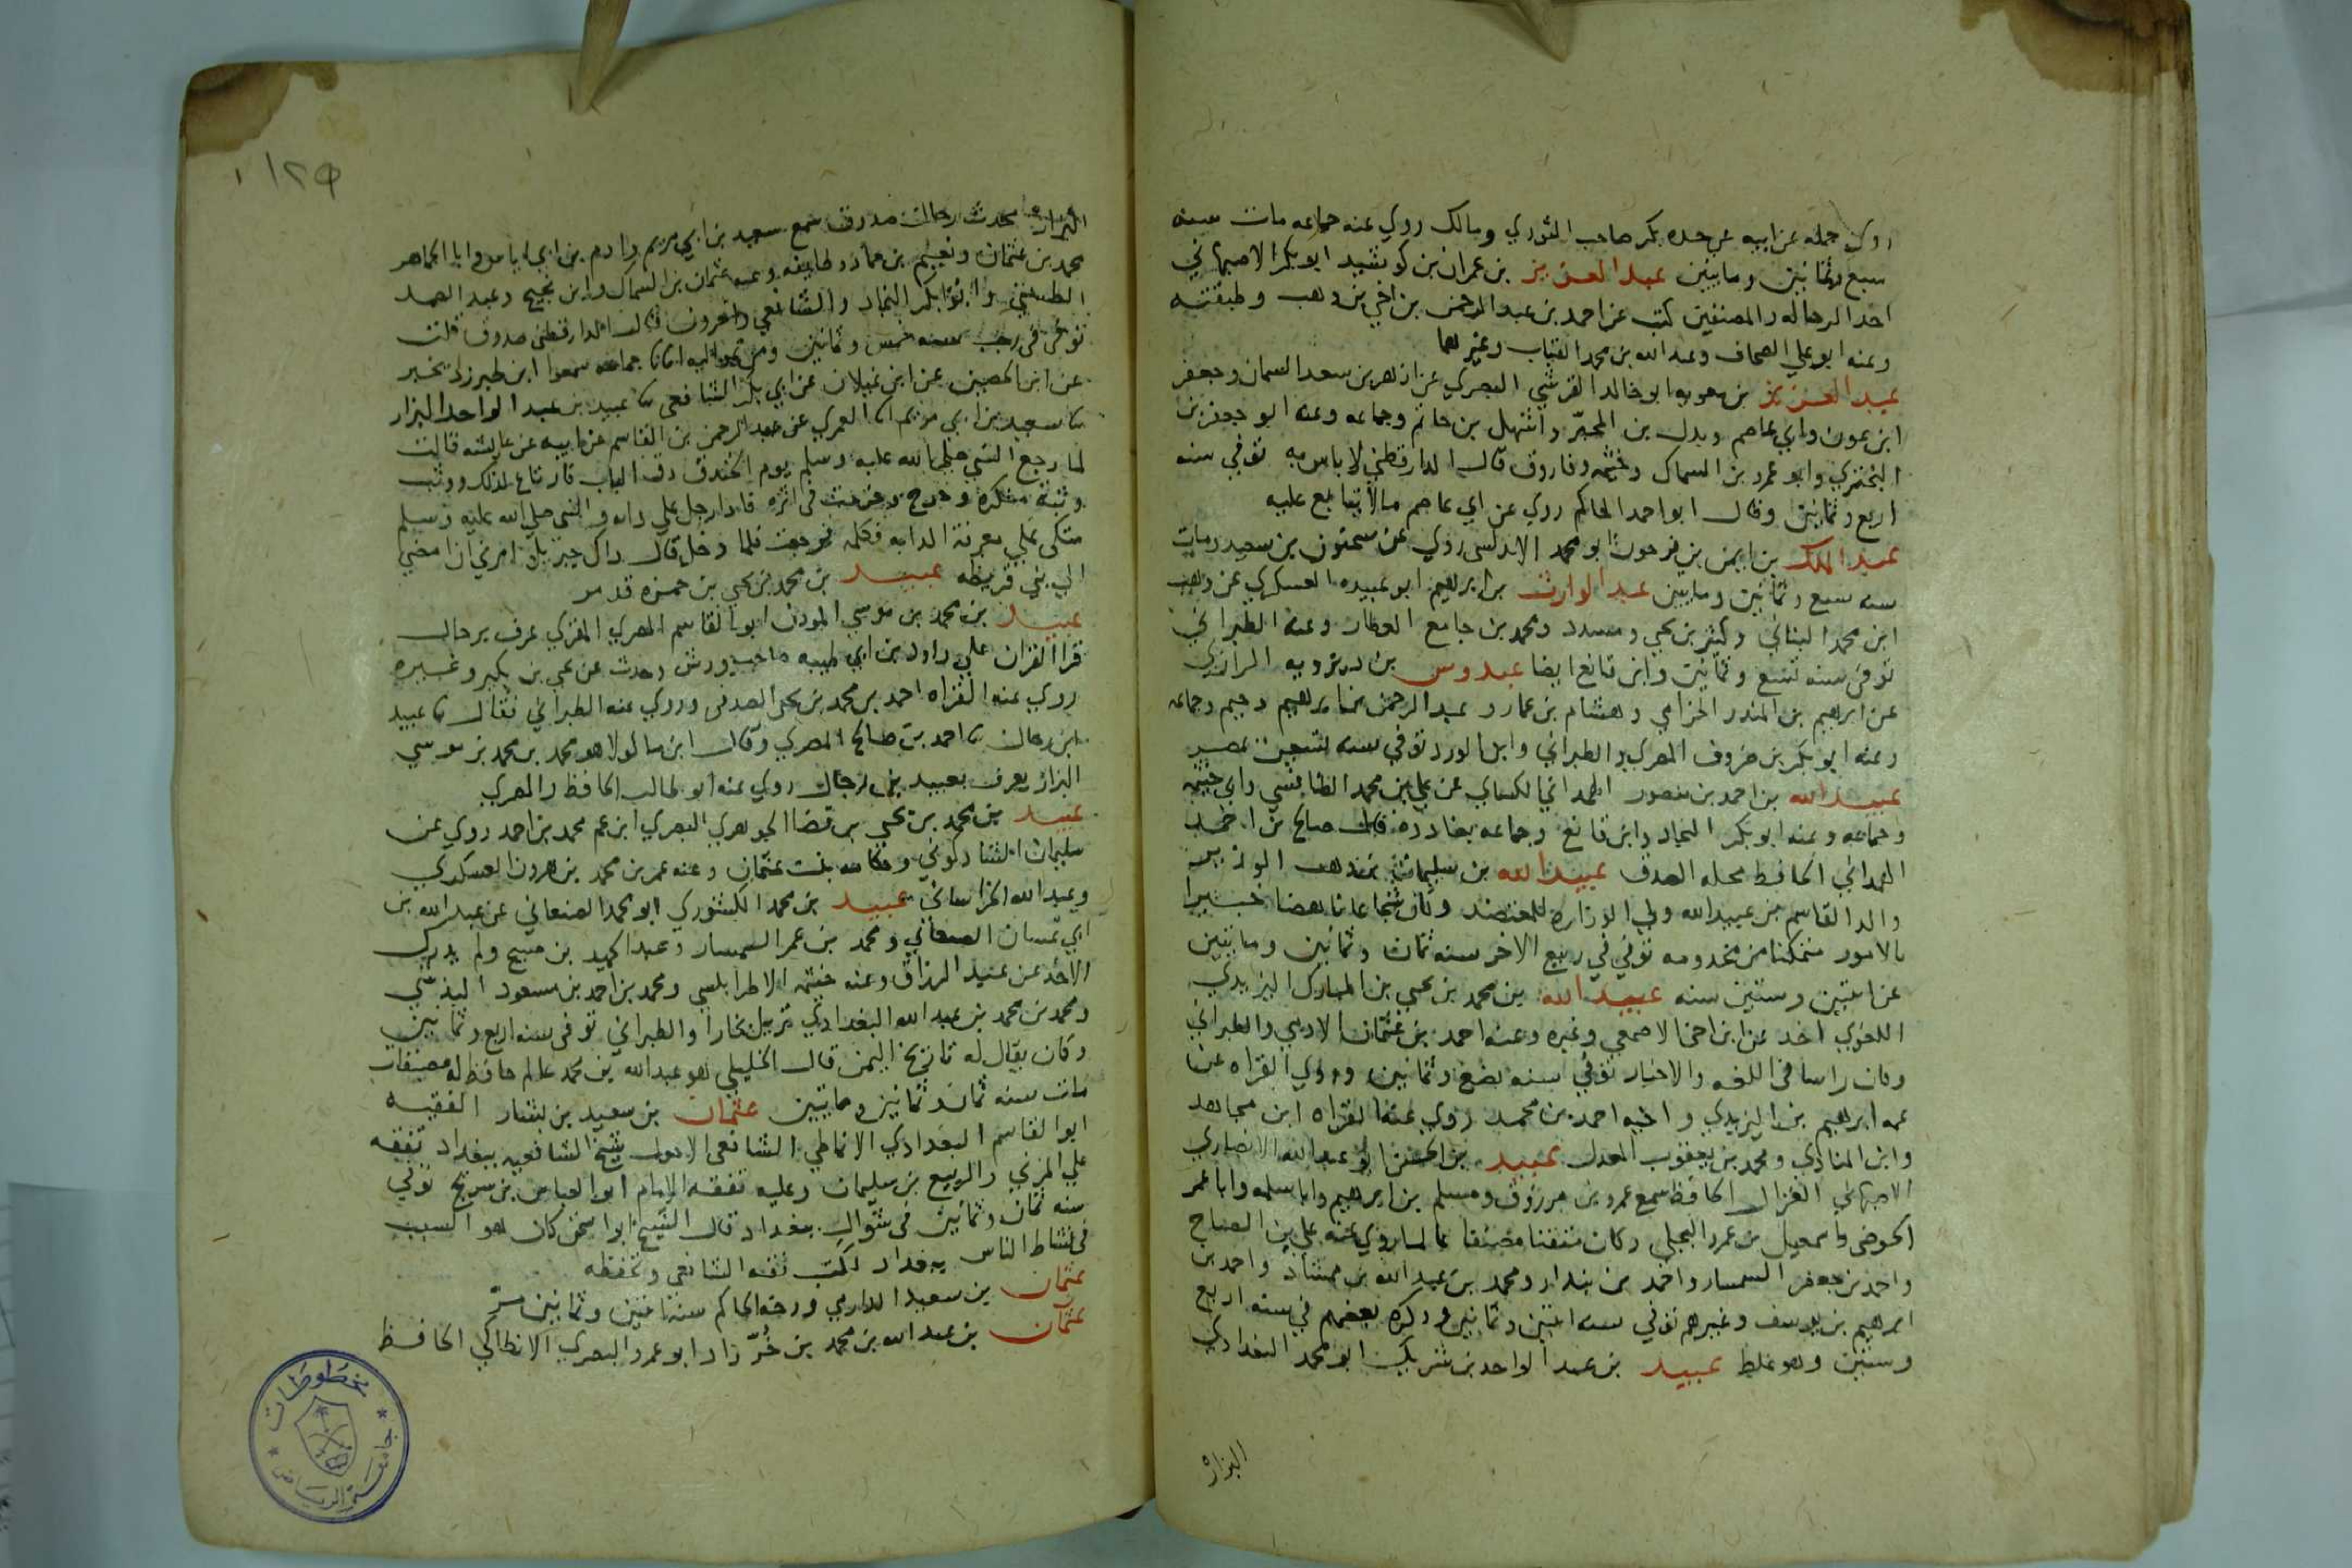 روى جمله عن ابيه عن جده بكر صاحب الثوري ومالك روي عنه جماعه مات سنه
سبع وثمانين ومايتين عبد العزيز بن عمران بن كوشيد ابو بكر الاصبهاني
احد الرحاله والمصنفين كتب عن احمد بن عبد الرحمن بن اخي بن وهب وطبقته
وعنه ابو علي الصحاف وعبد الله بن محمد القباب وغيرهما
عبد العزيز بن معويه ابو خالد القرشي البصري عن ازهر بن سعد السمان وجعفر
ابن عون وابي عاصم وبدل بن المحبّر واشهل بن حاتم وجماعه وعنه ابو جعفر بن
البختري وابو عمرو بن السماك وخيثمه وفاروق قال الدارقطني لا باس به توفي سنه
اربع وثمانين وقال ابو احمد الحاكم روي عن ابي عاصم مالا يتابع عليه
عبد الملك بن ايمن بن فرحون ابو محمد الاندلسي روي عن سحنون بن سعيد ومات
سنه سبع وثمانين ومايتين عبد الوارث بن ابرهيم ابو عبيده العسكري عن وهب
ابن محمد البناني وكثير بن يحيي ومسدد ومحمد بن جامع العطار وعنه الطبراني
توفي سنه تسع وثمانين وابن قانع ايضا عبدوس بن ديزويه الرازي
عن ابرهيم بن المنذر الحزامي وهشام بن عمار وعبد الرحمن بن ابرهيم دحيم وجماعه
وعنه ابو بكر بن خروف المصري والطبراني وابن الورد توفي سنه تسعين بمصر
عبيد الله بن احمد بن منصور الهمداني الكسائي عن علي بن محمد الطنافسي وابي خيثمه
وجماعه وعنه ابو بكر النجاد وابن قانع وجماعه بغادده قال صالح بن احمد
الهمداني الحافظ محله الصدق عبيد الله بن سليمان بن وهب الوزير
والد القاسم بن عبيد الله ولي الوزاره للمعتضد وكان شجاعا ناهضا خبيرا
بالامور متمكنا من مخدومه توفي في ربيع الاخر سنه ثمان وثمانين ومايتين
عن اثنتين وستين سنه عبيد الله بن محمد بن يحيي بن المبارك اليزيدي
اللغوي اخذ عن ابن اخي الاصمعي وغيره وعنه احمد بن عثمان الادمي والطبراني
وكان راسا في اللغه والاخبار توفي سنه بضع وثمانين وروي القراه عن
عمه ابرهيم بن اليزيدي واخيه احمد بن محمد روي عنه القراه ابن مجاهد
وابن المنادي ومحمد بن يعقوب المعدل عبيد بن الحسن ابو عبد الله الانصاري
الاصبهاني الغزال الحافظ سمع عمرو بن مرزوق ومسلم بن ابرهيم وابا سلمه وابا عمر
الحوضي واسمعيل بن عمرو البجلي وكان متقنا مصنفا عالما روي عنه علي بن الصباح
واحمد بن جعفر السمسار واحمد بن بندار ومحمد بن عبد الله بن ممشاذ واحمد بن
ابرهيم بن يوسف وغيرهم توفي سنه اثنتين وثمانين وذكره بعضهم في سنه اربع
وستين وهو غلط عبيد بن عبد الواحد بن شريك ابو محمد البغدادي
البزار
١٢٥
البزار محدث رحال صدوق سمع سعيد بن ابي مريم وادم بن ابي اياس وابا الجماهر
محمد بن عثمان ونعيم بن حماد وطايفه وعنه عثمان بن السماك وابن نجيح وعبد الصمد
الطستي وابو بكر النجاد والشافعي واخرون قال الدارقطني صدوق قلت
توفي في رجب سنه خمس وثمانين ومن انبانا جماعه سمعوا ابن طبرزد يخبر
عن ابن الحصين عن ابن غيلان عن ابي بكر الشافعي ثنا عبيد بن عبد الواحد البزار
ثنا سعيد بن ابي مريم انا العمري عن عبد الرحمن بن القاسم عن ابيه عن عايشه قالت
لما رجع النبي صلي الله عليه وسلم يوم الخندق دق الباب فارتاع لذلك ووثب
وثبة منكره وخرج وخرجت في اثره فاذا رجل علي دابه والنبي صلي الله عليه وسلم
متكي علي معرفة الدابه فكلمه فرجعت فلما دخل قال ذاك جبريل امرني ان امضي
الي بني قريظه عبيد بن محمد بن يحيي بن حمزه قد مر
عبيد بن محمد بن موسي المودن ابو القاسم المصري المقري عرف برحال
قرا القران علي داود بن ابي طيبه صاحب ورش وحدث عن يحيي بن بكير وغيره
روي عنه القراه احمد بن محمد بن يحيي الصدفي وروي عنه الطبراني فقال ثنا عبيد
ابن رحال ثنا احمد بن صالح المصري وقال ابن ماكولا هو محمد بن محمد بن موسي
البزاز يعرف بعبيد بن رحال روي عنه ابو طالب الحافظ والمصري
عبيد بن محمد بن يحيي بن قضا الجوهري البصري ابن عم محمد بن احمد روي عن
سليمان الشاذكوني وحكامه بنت عثمان وعنه عمر بن محمد بن هرون العسكري
وعبد الله الخراساني عبيد بن محمد الكشوري ابو محمد الصنعاني عن عبد الله بن
ابي غسان الصنعاني ومحمد بن عمر السمسار وعبد الحميد بن صبيح ولم يدرك
الاخذ عن عبد الرزاق وعنه خيثمه الاطرابلسي ومحمد بن احمد بن مسعود البذشي
ومحمد بن محمد بن عبد الله البغدادي نزيل بخارا والطبراني توفي سنه اربع وثمانين
وكان يقال له تاريخ اليمن قال الخليلي هو عبد الله بن محمد عالم حافظ له مصنفات
مات سنه ثمان وثمانين ومايتين عثمان بن سعيد بن بشار الفقيه
ابو القاسم البغدادي الانماطي الشافعي الاحول شيخ الشافعيه ببغداد تفقه
علي المزني والربيع بن سليمان وعليه تفقه الامام ابو العباس بن سريج توفي
سنه ثمان وثمانين في شوال ببغداد قال الشيخ ابو اسحق كان هو السبب
في نشاط الناس ببغداد لكتب فقه الشافعي وتحفظه
عثمان بن سعيد الدارمي ورخه الحاكم سنه اثنتين وثمانين مرّ
عثمان بن عبد الله بن محمد بن خُرّزاد ابو عمرو البصري الانطاكي الحافظ
مخطوطات
جامعة الرياض